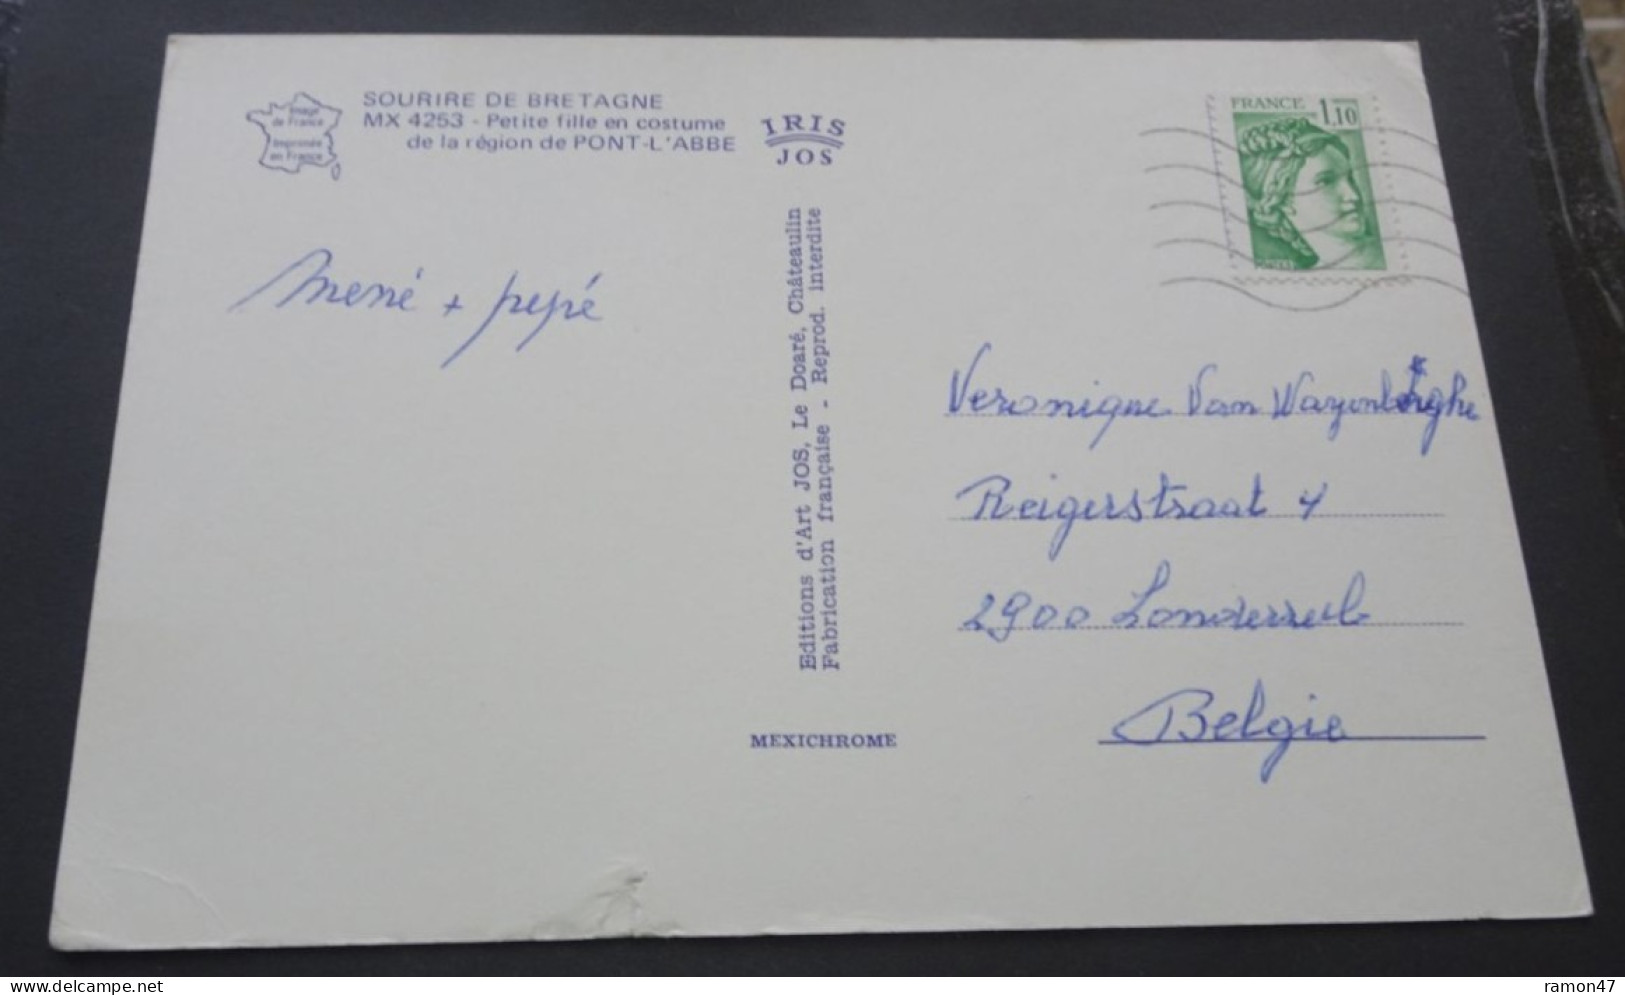 SOURIRE DE BRETAGNE
MX 4253 - Petite fille en costume
de la région de PONT-L'ABBE
Image
de France
Imprimée
en France
IRIS
JOS
FRANCE 1,10
mené + pepé
Editions d'Art JOS, Le Doaré, Châteaulin
Fabrication française - Reprod. interdite
Veronique Van
Reigerstraat 4
2900 Londerzeel
Belgie
MEXICHROME
ramon47